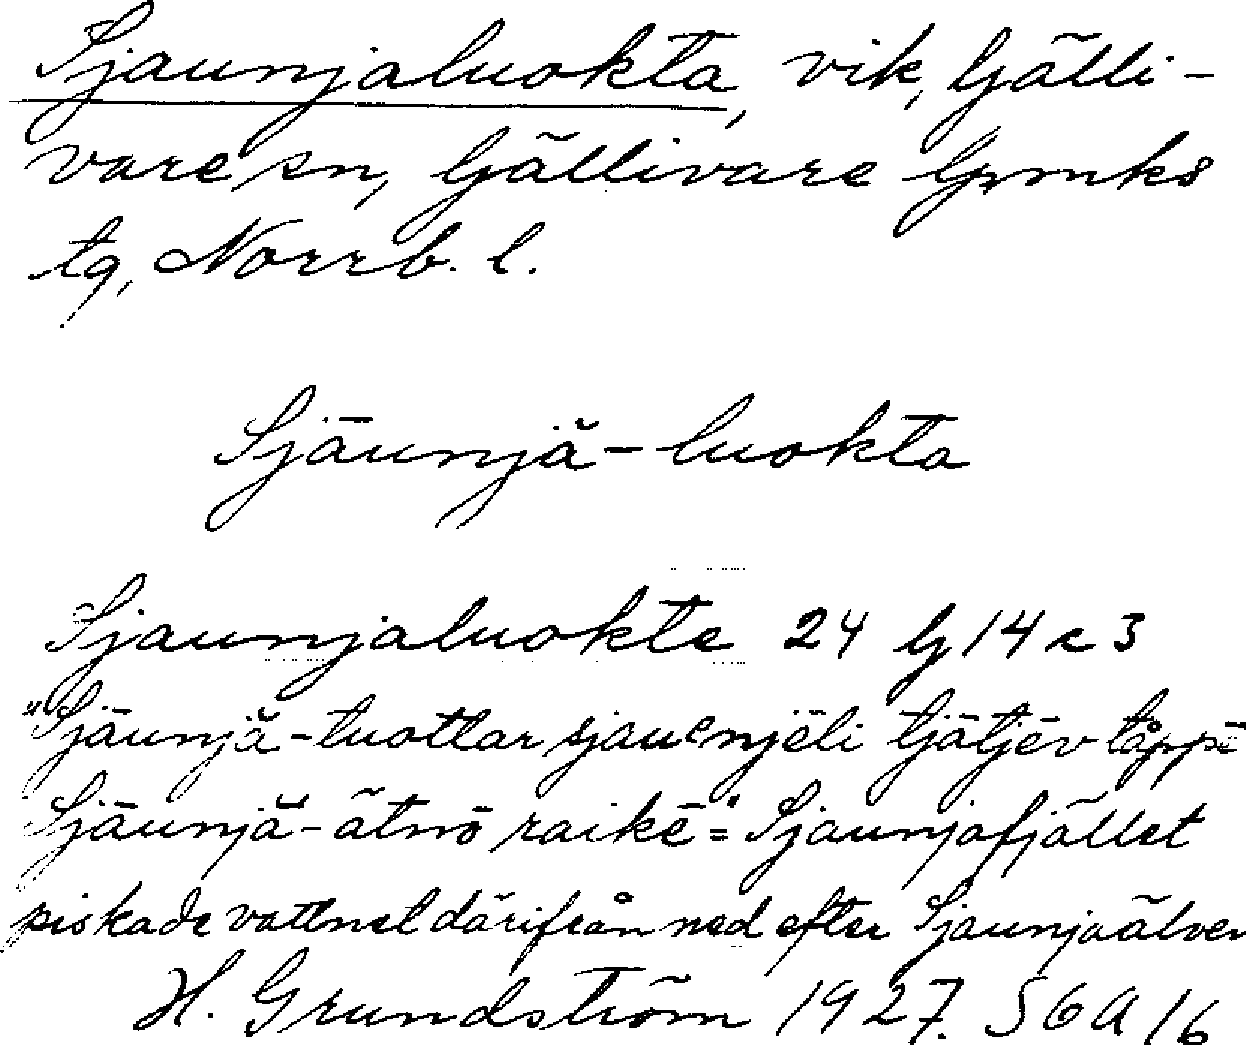 Sjaunjaluokta, vik, Gälli-
vare sn, Gällivare lpmks
tg, Norrb. l.
Sjāunjă-luokta
Sjaunjaluokte 24 G 14 c 3
"Sjāunjă-tuottar sjauenjēli tjātjēv tåppē
Sjāunjă-ātnō raikē = Sjaunjafjället
piskade vattnet därifrån ned efter Sjaunjaälven
H. Grundström 1927. SGA 16